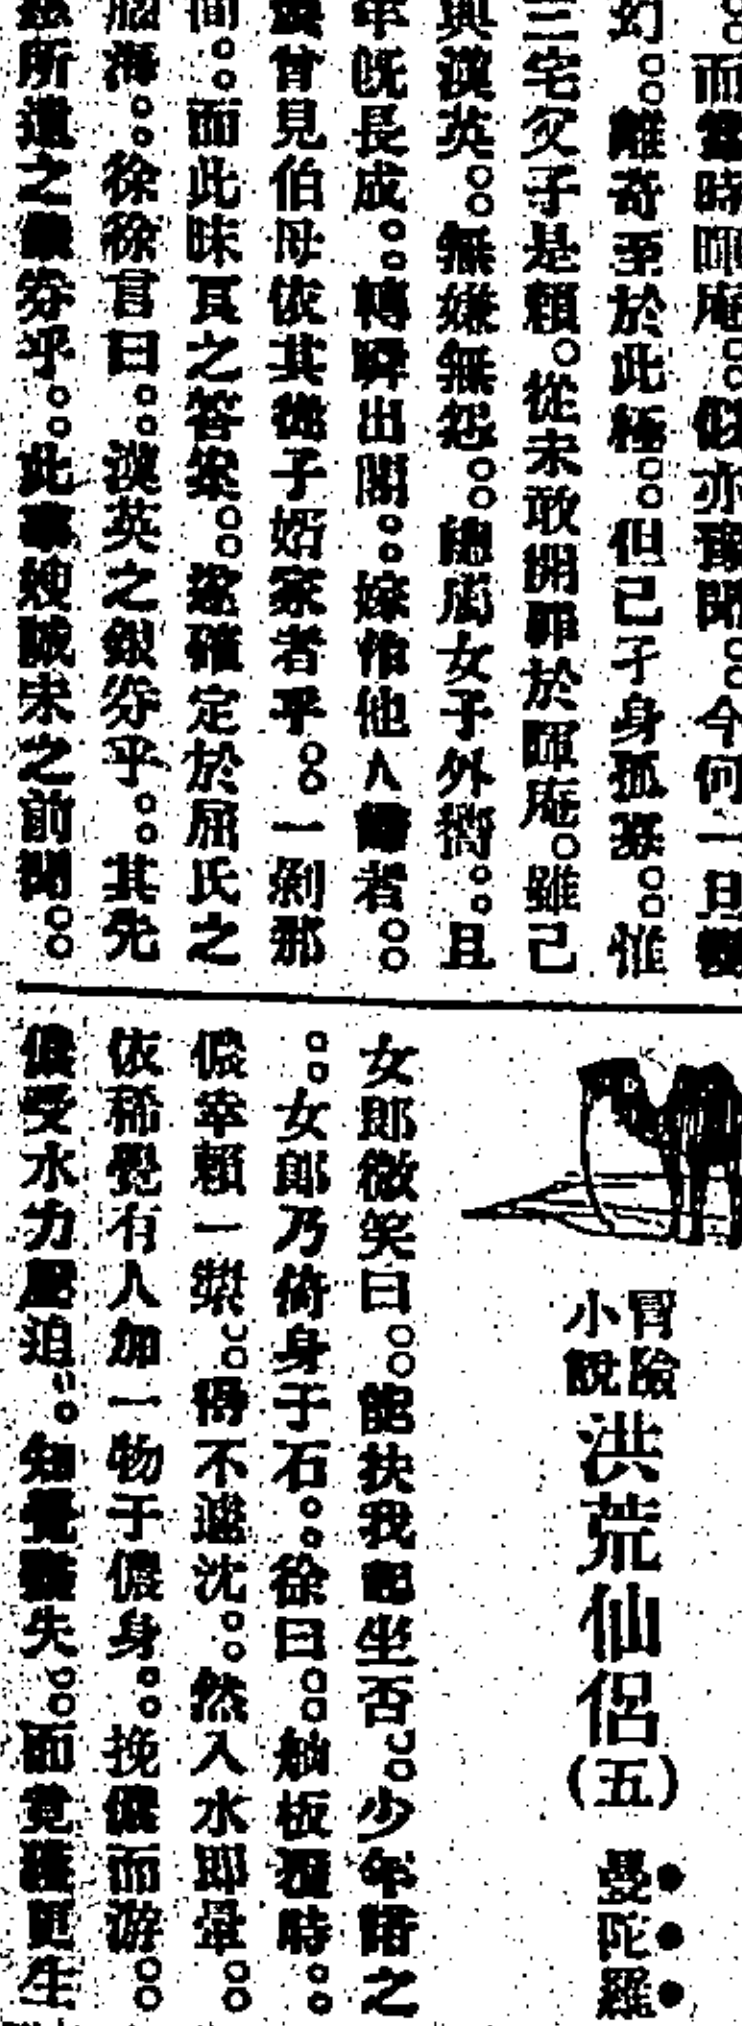 。。而霎時暉庵。。似亦豫聞。。今何一旦變
幻。。離奇至於此極。。但已孑身孤寡。。惟
三宅父子是賴。從未敢開罪於暉庵。雖己
與漢英。。無嫌無怨。。總屬女子外嚮。。且
年既長成。。轉瞬出閣。。嫁作他人婦者。。
曾見伯母依其子婿家者乎。。一剎那
間。。而此昧真之答案。。遂確定於屈氏之
腦海。。徐徐言曰。。漢英之銀券乎。。其先
所遺之銀券乎。。此事嫂誠未之前聞。。
冒險
小說
洪荒仙侶(五)
曼陀羅
女郎微笑曰。。能扶我起坐否。。少年諾之
。。女郎乃倚身于石。。徐曰。。舢板覆時。。
儂幸賴一槳。。得不遽沈。。然入水即暈。。
依稀覺有人加一物于儂身。。挽儂而游。。
儂受水力壓迫。。知覺失。。而竟獲更生